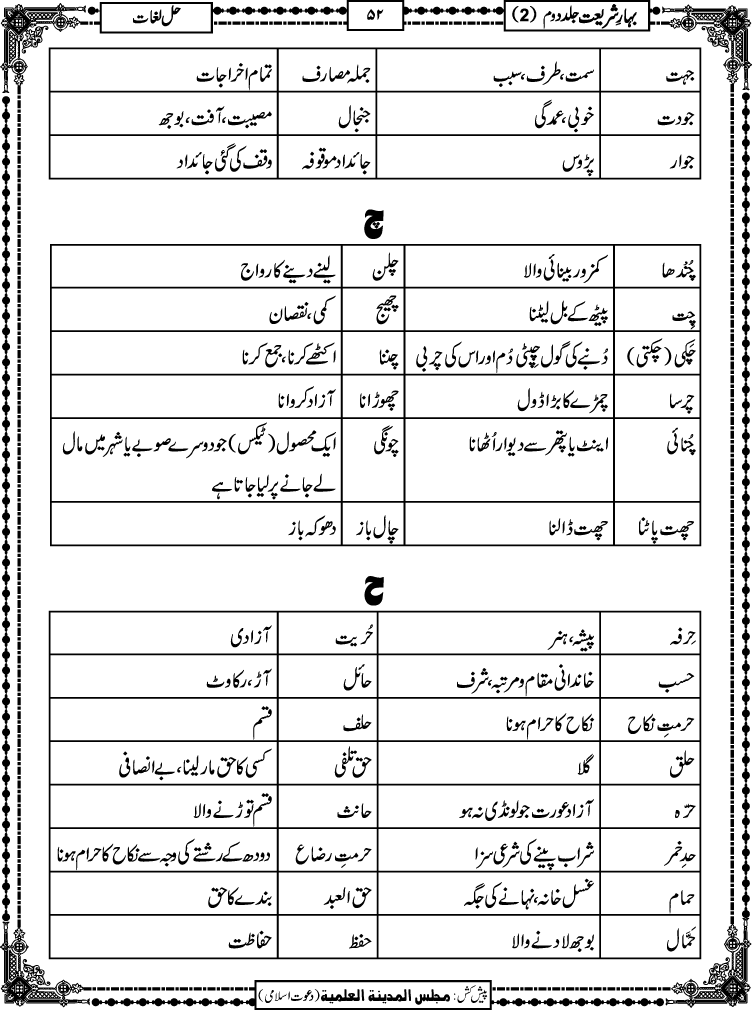 بہارِشریعت جلد دوم (2) ۵۲ حل لغات
جہت سمت، طرف، سبب جملہ مصارف تمام اخراجات
جودت خوبی، عمدگی جنجال مصیبت، آفت، بوجھ
جوار پڑوس جائداد موقوفہ وقف کی گئی جائداد
چ
چُندھا کمزور بینائی والا چلن لینے دینے کا رواج
چِت پیٹھ کے بل لیٹنا چھیج کمی، نقصان
چَکی (چکتی) دُنبے کی گول چپٹی دُم اور اس کی چربی چننا اکٹھے کرنا، جمع کرنا
چرسا چمڑے کا بڑا ڈول چھوڑانا آزاد کروانا
چُنائی اینٹ یا پتھر سے دیوار اُٹھانا چونگی ایک محصول (ٹیکس) جو دوسرے صوبے یا شہر میں مال
لے جانے پر لیا جاتا ہے
چھت پاٹنا چھت ڈالنا چال باز دھوکہ باز
ح
حِرفہ پیشہ، ہنر حُریت آزادی
حسب خاندانی مقام و مرتبہ، شرف حائل آڑ، رکاوٹ
حرمتِ نکاح نکاح کا حرام ہونا حلف قسم
حلق گلا حق تلفی کسی کا حق مار لینا، بے انصافی
حرّہ آزاد عورت جو لونڈی نہ ہو حانث قسم توڑنے والا
حدِ خمر شراب پینے کی شرعی سزا حرمتِ رضاع دودھ کے رشتے کی وجہ سے نکاح کا حرام ہونا
حمام غسل خانہ، نہانے کی جگہ حق العبد بندے کا حق
حَمَّال بوجھ لادنے والا حفظ حفاظت
پیش کش: مجلس المدینۃ العلمیۃ (دعوت اسلامی)